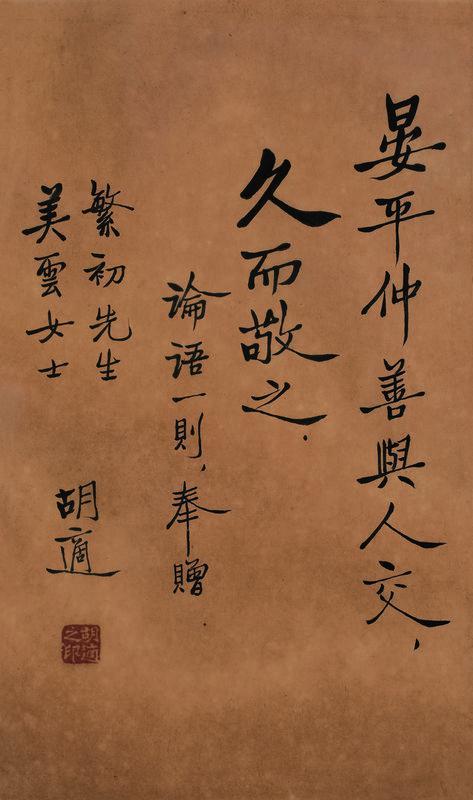 晏平仲善與人交，
久而敬之．
論語一則，奉贈
繁初先生
美雲女士
胡適
胡適之印